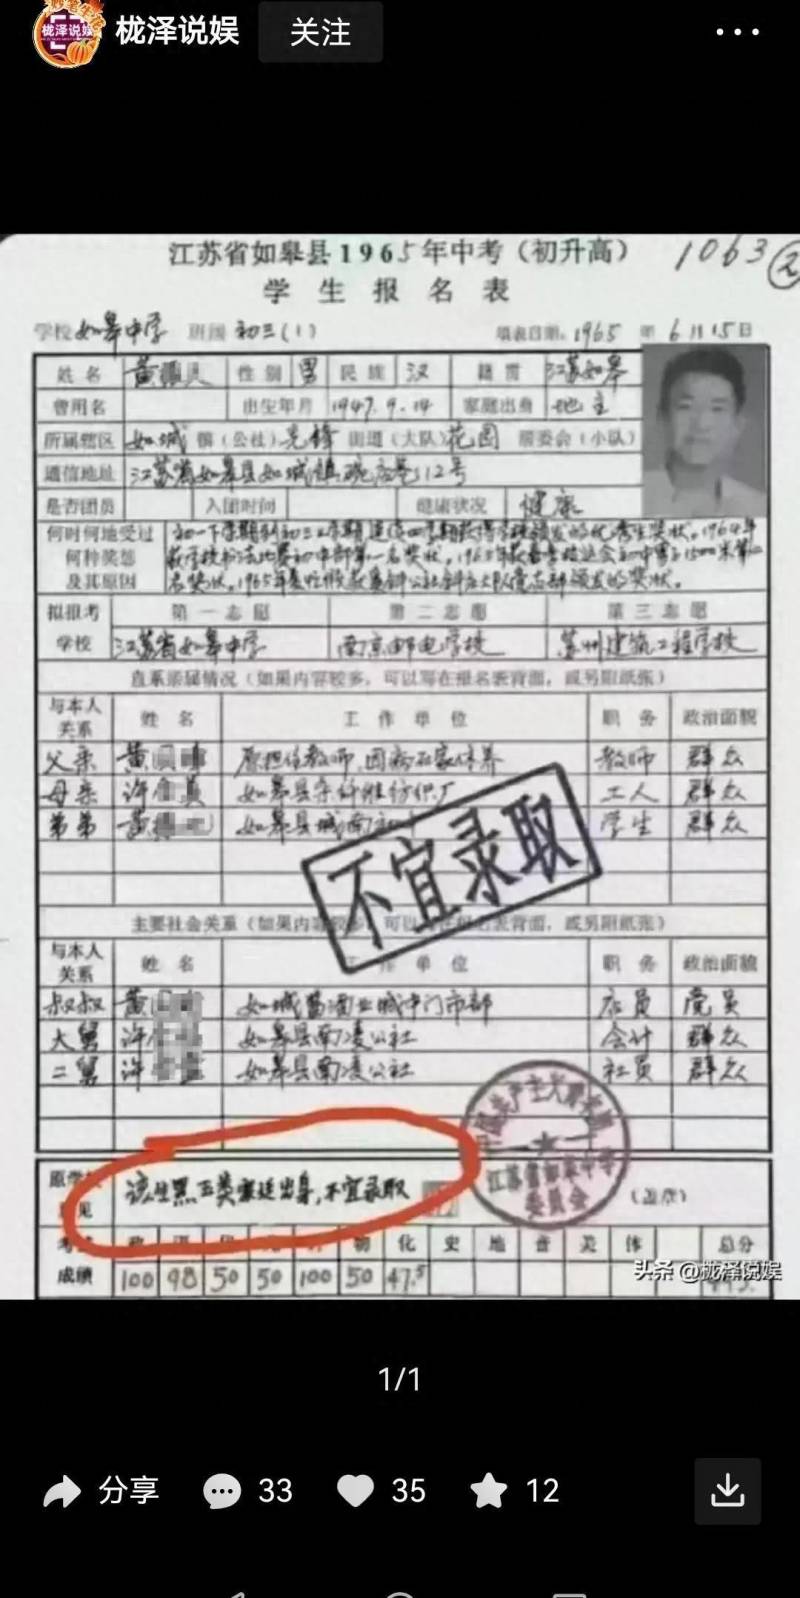 栊泽说娱 关注
江苏省如皋县1965年中考（初升高） 1063 ②
学生报名表
学校 如皋中学 班级 初三(1) 填表日期：1965年6月15日
姓名 黄 性别 男 民族 汉 籍贯 江苏如皋
曾用名 出生年月 1947.9.14 家庭出身 地主
所属辖区 如城 镇（公社）先锋 街道（大队）花园 居委会（小队）
通信地址 江苏省如皋县如城镇 巷112号
是否团员 入团时间 健康状况 健康
何时何地受过
何种奖惩
及其原因
初一下学期到初三上学期连续四学期获得学校颁发的优秀生奖状。1964年
获学校 比赛初中部第一名奖状。1965年获 校运会初中男子1500米第
名奖状。1965年 假获 公社 大队党支部颁发的奖状。
拟报考
学校
第一志愿 第二志愿 第三志愿
江苏省如皋中学 南京邮电学校 苏州建筑工程学校
直系亲属情况（如果内容较多，可以写在报名表背面，或另附纸张）
与本人
关系
姓名 工作单位 职务 政治面貌
父亲 黄 原担任教师，因病在家休养 教师 群众
母亲 许 如皋县 纤维纺织厂 工人 群众
弟弟 黄 如皋县城南初中 学生 群众
不宜录取
主要社会关系（如果内容较多，可以 报名表背面，或另附纸张）
与本人
关系
姓名 工作单位 职务 政治面貌
叔叔 黄 如城 酒业城中门市部 店员 党员
大舅 许 如皋县南凌公社 会计 群众
二舅 许 如皋县南凌公社 社员 群众
中国共产主义青年团
江苏省如皋中学
委员会
原学校
意见
该生黑五类家庭出身，不宜录取
（盖章）
物 化 史 地 音 美 体 总分
成绩 100 98 50 50 100 50 47.5
头条 @栊泽说娱
1/1
分享 33 35 12